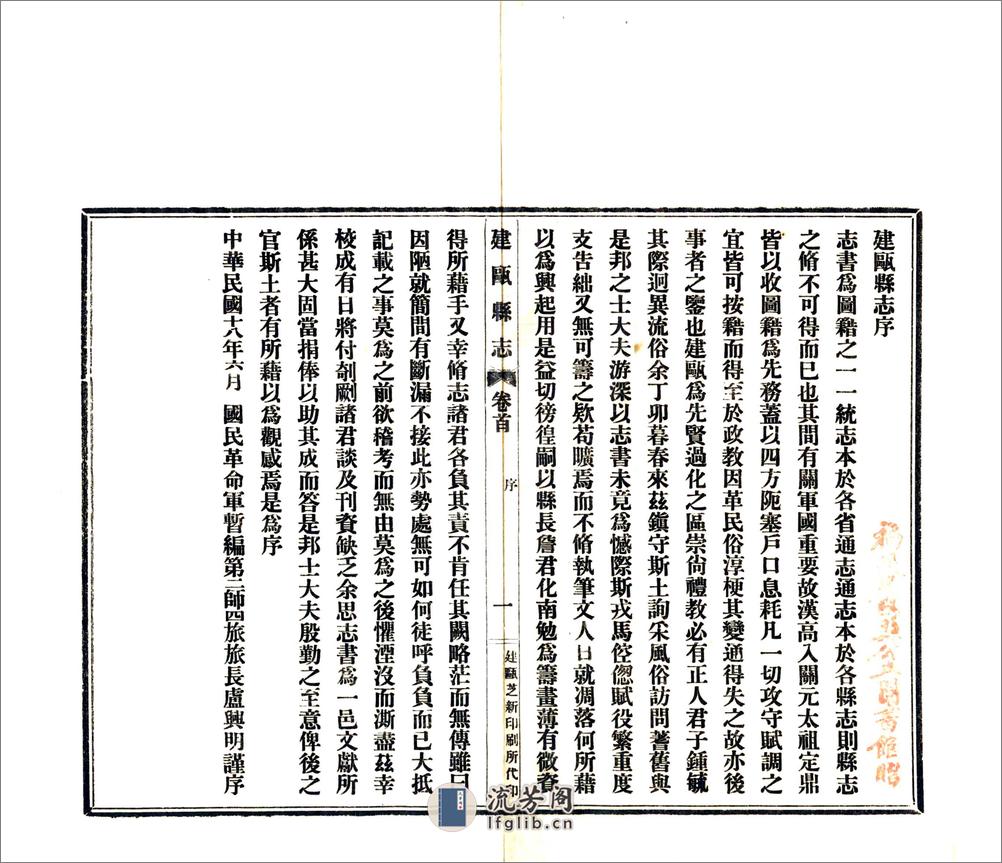 建甌縣志序
志書爲圖籍之一一統志本於各省通志通志本於各縣志則縣志
之脩不可得而已也其間有關軍國重要故漢高入關元太祖定鼎
皆以收圖籍爲先務蓋以四方阨塞戶口息耗凡一切攻守賦調之
宜皆可按籍而得至於政教因革民俗淳梗其變通得失之故亦後
事者之鑒也建甌爲先賢過化之區崇尙禮教必有正人君子鍾毓
其際迥異流俗余丁卯暮春來茲鎭守斯土詢采風俗訪問蓍舊與
是邦之士大夫游深以志書未竟爲憾際斯戎馬倥偬賦役繁重度
支告絀又無可籌之欵苟曠焉而不脩執筆文人日就凋落何所藉
以爲興起用是益切徬徨嗣以縣長詹君化南勉爲籌畫薄有微資
建甌縣志 卷首 序 一 建甌芝新印刷所代印
得所藉手又幸脩志諸君各負其責不肯任其闕略茫而無傳雖曰
因陋就簡間有斷漏不接此亦勢處無可如何徒呼負負而已大抵
記載之事莫爲之前欲稽考而無由莫爲之後懼湮沒而澌盡茲幸
校成有日將付剞劂諸君談及刊資缺乏余思志書爲一邑文獻所
係甚大固當捐俸以助其成而答是邦士大夫殷勤之至意俾後之
官斯土者有所藉以爲觀感焉是爲序
中華民國十八年六月 國民革命軍暫編第二師四旅旅長盧興明謹序
流芳阁
lfglib.cn